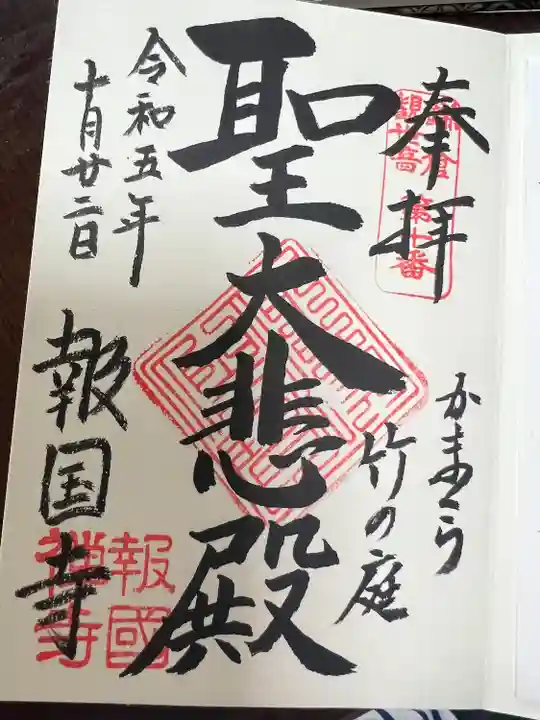 奉拝
鎌倉
観世音
第十番
かまくら
竹の庭
聖大悲殿
令和五年
十月廿二日
報国寺
報國
禅寺